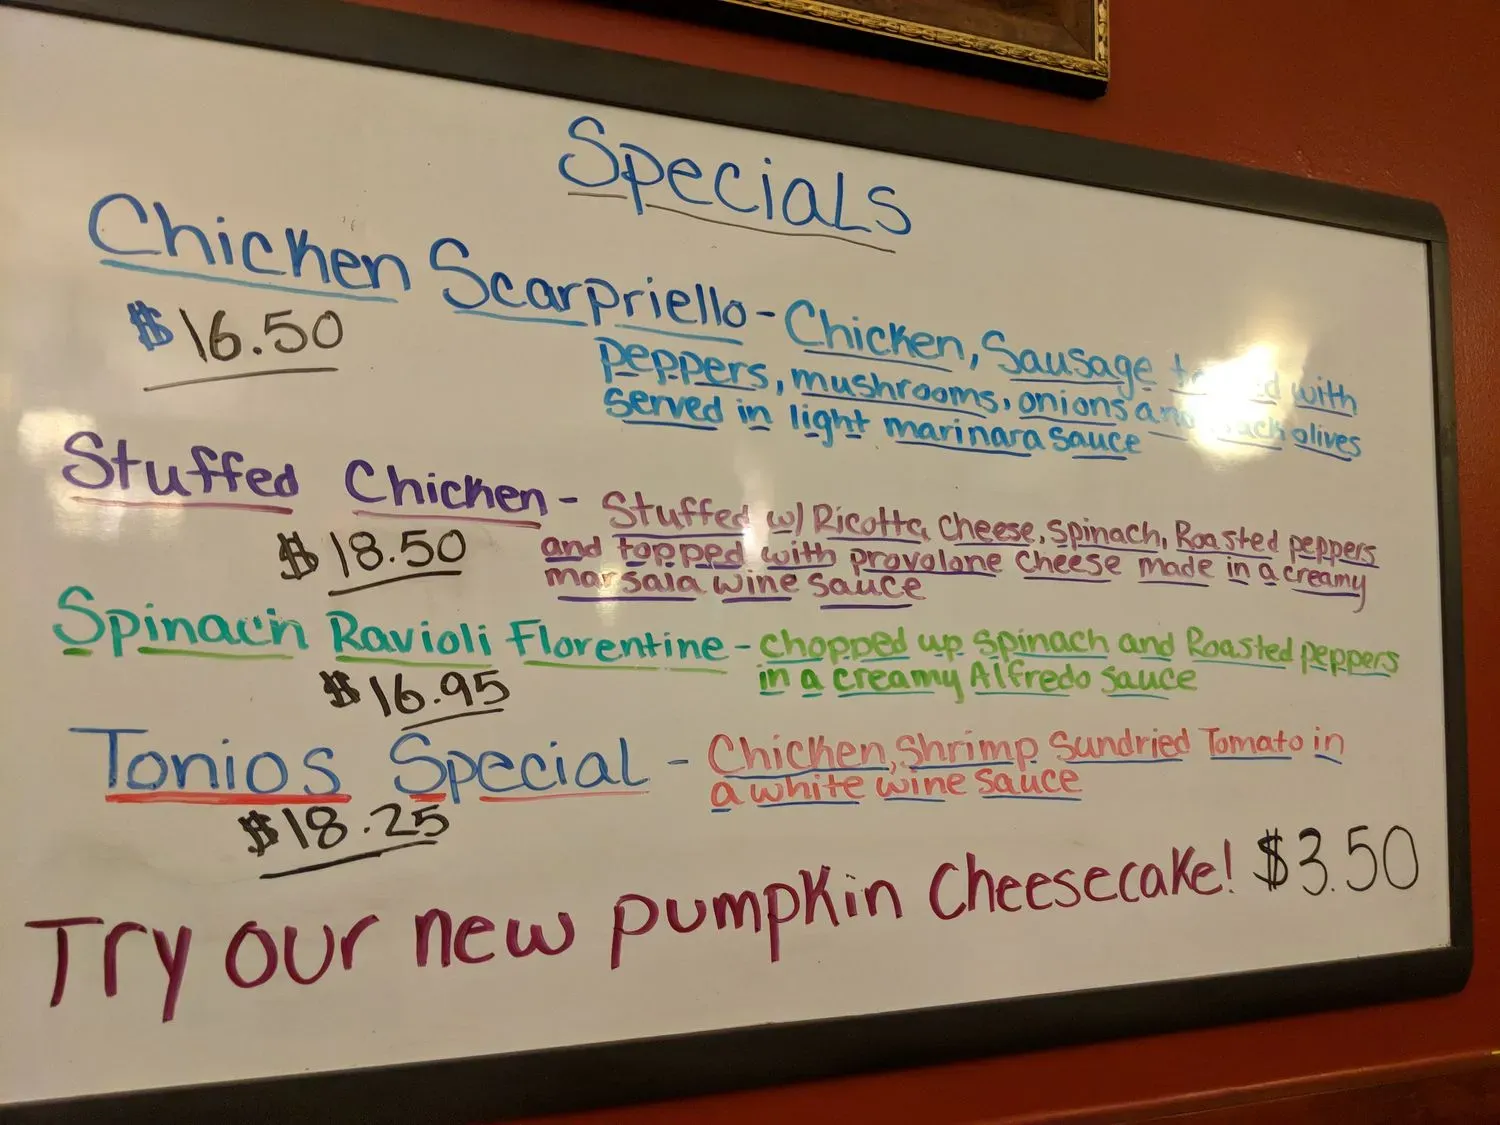 Specials
Chicken Scarpriello - Chicken, Sausage with
$16.50
peppers, mushrooms, onions and olives
served in light marinara sauce
Stuffed Chicken - Stuffed w/ Ricotta Cheese, Spinach, Roasted peppers
$18.50
and topped with provolone cheese made in a creamy
marsala wine sauce
Spinach Ravioli Florentine - chopped up spinach and Roasted peppers
$16.95
in a creamy Alfredo sauce
Tonios Special - Chicken, Shrimp Sundried Tomato in
$18.25
a white wine sauce
Try our new pumpkin Cheesecake! $3.50